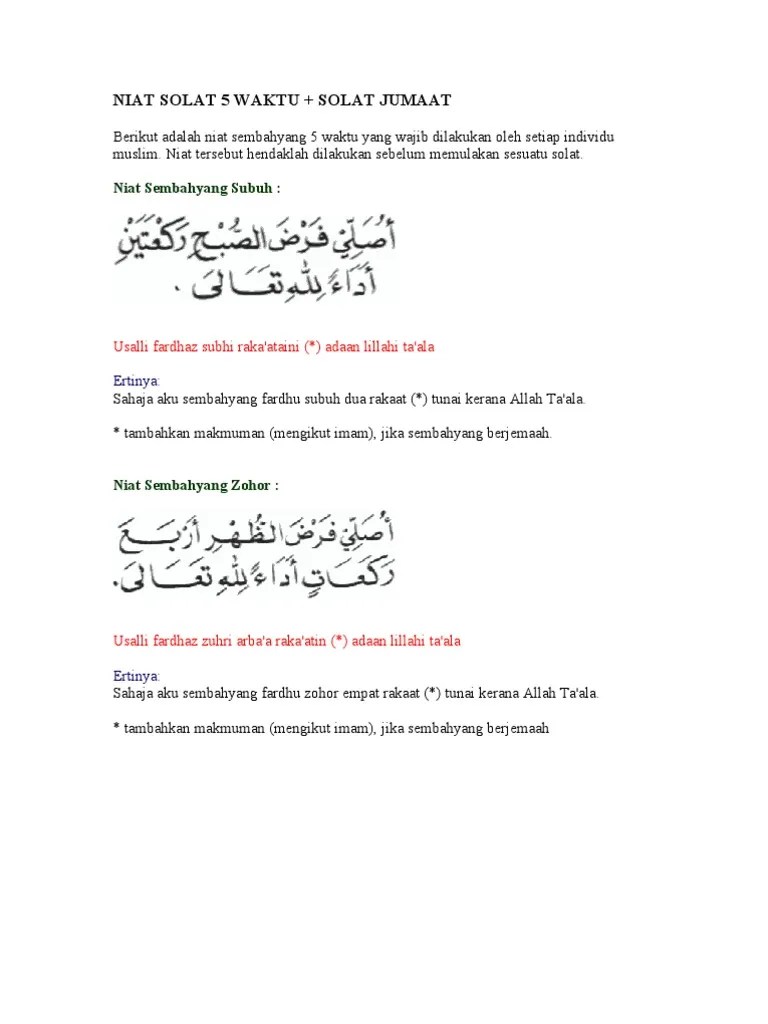 NIAT SOLAT 5 WAKTU + SOLAT JUMAAT
Berikut adalah niat sembahyang 5 waktu yang wajib dilakukan oleh setiap individu
muslim. Niat tersebut hendaklah dilakukan sebelum memulakan sesuatu solat.
Niat Sembahyang Subuh :
أُصَلِّيْ فَرْضَ الصُّبْحِ رَكْعَتَيْنِ
أَدَاءً لِلّٰهِ تَعَالَى .
Usalli fardhaz subhi raka'ataini (*) adaan lillahi ta'ala
Ertinya:
Sahaja aku sembahyang fardhu subuh dua rakaat (*) tunai kerana Allah Ta'ala.
* tambahkan makmuman (mengikut imam), jika sembahyang berjemaah.
Niat Sembahyang Zohor :
أُصَلِّيْ فَرْضَ الظُّهْرِ أَرْبَعَ
رَكَعَاتٍ أَدَاءً لِلّٰهِ تَعَالَى.
Usalli fardhaz zuhri arba'a raka'atin (*) adaan lillahi ta'ala
Ertinya:
Sahaja aku sembahyang fardhu zohor empat rakaat (*) tunai kerana Allah Ta'ala.
* tambahkan makmuman (mengikut imam), jika sembahyang berjemaah